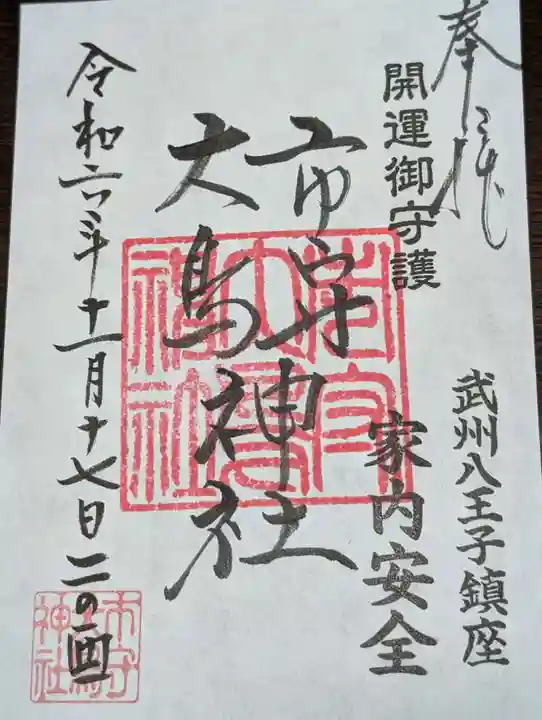 奉拝
開運御守護
武州八王子鎮座
家内安全
市守
大鳥神社
令和六年十一月十七日 二の酉
市守大鳥神社
市守大鳥神社